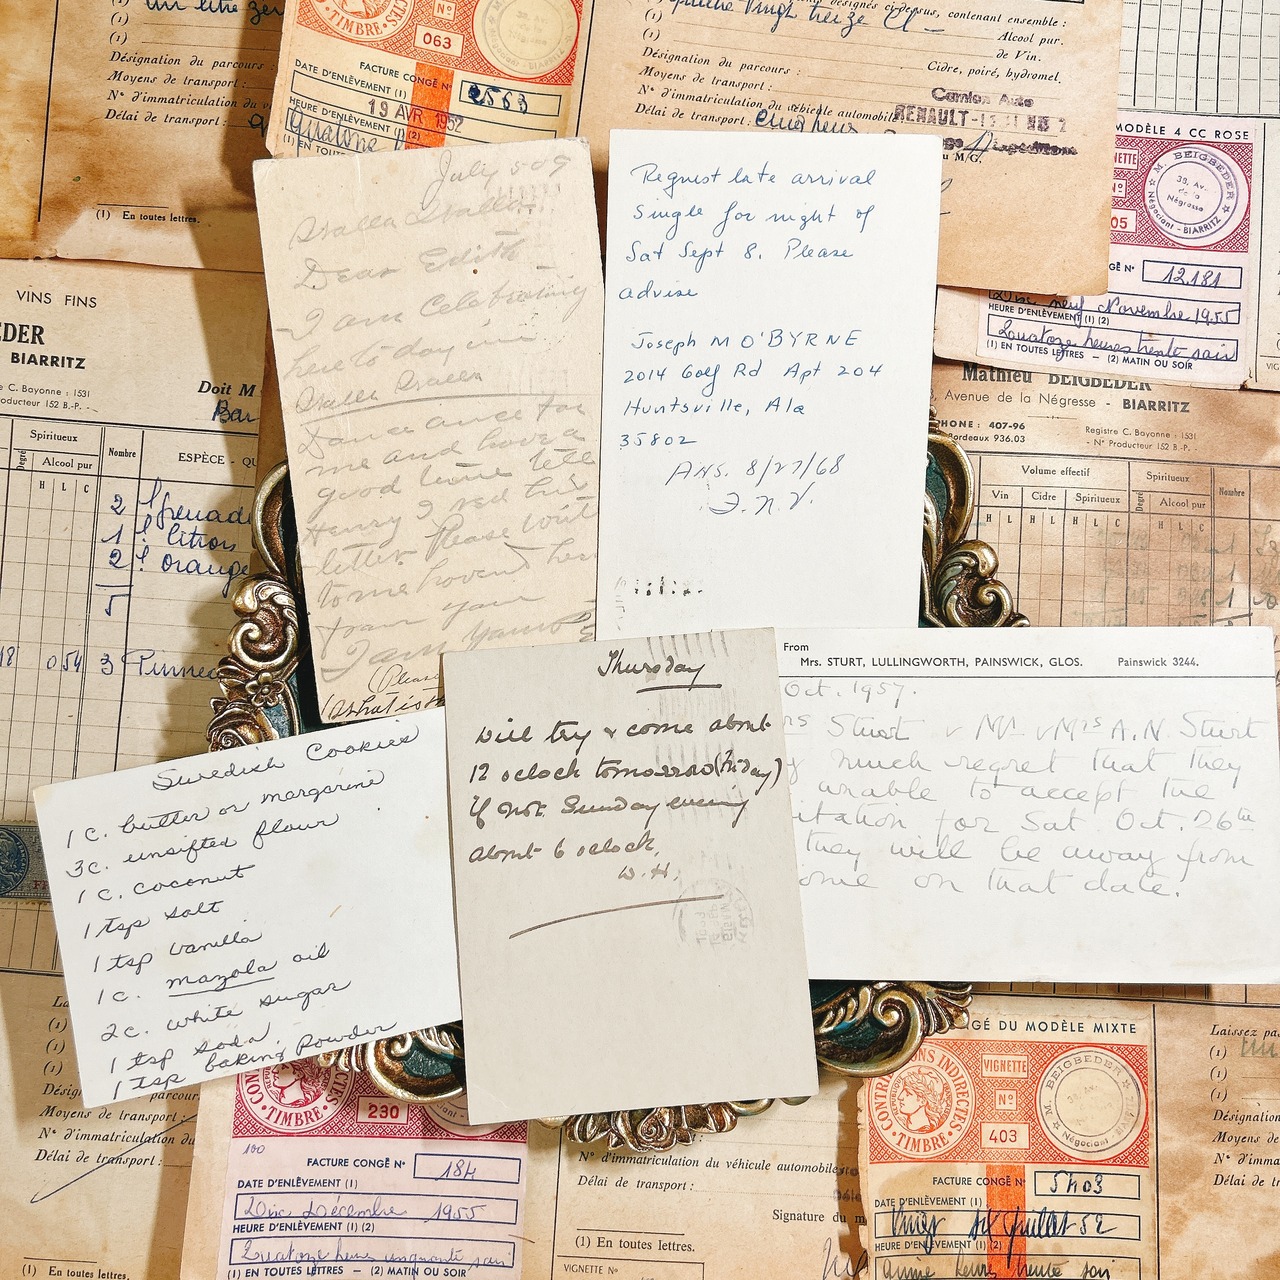 un litre
(1)
(1)
Désignation du parcours :
Moyens de transport :
N° d'immatriculation du v
Délai de transport :
(1) En toutes lettres.
TIMBRE
N°
063
FACTURE CONGÉ N° 2563
DATE D'ENLÈVEMENT (1)
19 AVR 1952
HEURE D'ENLÈVEMENT (1) (2)
(1) EN TOUTES
désignés ci-dessus, contenant ensemble :
(1)
Alcool pur.
(1)
de Vin.
(1)
Cidre, poiré, hydromel.
Désignation du parcours :
Moyens de transport :
N° d'immatriculation du véhicule automobile
Délai de transport :
Camion Auto
RENAULT
MODÈLE 4 CC ROSE
VIGNETTE
N°
05
M. BEIGBEDER
38, Av. de la Négresse
Négociant - BIARRITZ
CONGÉ N° 12.181
Dix neuf Novembre 1955
HEURE D'ENLÈVEMENT (1) (2)
Quatorze heures trente soir
(1) EN TOUTES LETTRES — (2) MATIN OU SOIR
VINS FINS
EDER
BIARRITZ
re C. Bayonne : 1531
Producteur 152 B.-P.
Doit M
Bar
Spiritueux
Degré
Alcool pur
Nombre
ESPÈCE - QU
H L C
2 l grenad
1 l. citron
2 l orange
5
18 054 3
Mathieu BEIGBEDER
Avenue de la Négresse - BIARRITZ
PHONE : 407-96
Bordeaux 936.03
Registre C. Bayonne : 1531
N° Producteur 152 B.-P.
Volume effectif
Spiritueux
Vin
Cidre
Spiritueux
Degré
Alcool pur
Nombre
H L H L H L C H L C
July 5 09
Walla Walla
Dear Edith
I am Celebrating
here to day in
Walla Walla
Dance once for
me and have a
good time tell
Henry I red his
letter. Please
to me
from your
I am Yours
(Please
(What is
Request late arrival
Single for night of
Sat Sept 8. Please
advise
Joseph M O'BYRNE
2014 Golf Rd Apt 204
Huntsville, Ala
35802
ANS. 8/27/68
From
Mrs. STURT, LULLINGWORTH, PAINSWICK, GLOS. Painswick 3244.
Oct. 1957.
rs Sturt & Mr & Mrs A.N. Sturt
much regret that they
unable to accept the
itation for Sat. Oct. 26th
they will be away from
ome on that date.
Swedish Cookies
1 c. butter or margarine
3c. unsifted flour
1 c. coconut
1 tsp salt
1 tsp vanilla
1c. mazola oil
2c. white sugar
1 tsp soda
1 tsp baking Powder
Thursday
Will try & come about
12 oclock tomorrow (friday)
if not Sunday evening
about 6 oclock.
W.H.
La
(1)
(1)
(1)
Désig parcours
Moyens de transport :
N° d'immatriculation du
Délai de transport :
(1) En toutes lettres.
TIMBRE
230
130
FACTURE CONGÉ N° 184
DATE D'ENLÈVEMENT (1)
Dix Décembre 1955
HEURE D'ENLÈVEMENT (1) (2)
Quatorze heures cinquante soir
(1) EN TOUTES LETTRES — (2) MATIN OU SOIR
N° d'immatriculation du véhicule automobile
Délai de transport :
Signature du m
(1) En toutes lettres.
VIGNETTE N°
GÉ DU MODÈLE MIXTE
CONTRIBUTIONS INDIRECTES
TIMBRE
VIGNETTE
N°
403
M. BEIGBEDER
Négociant - BIARRITZ
FACTURE CONGÉ N° 5403
DATE D'ENLÈVEMENT (1)
Vingt six Juillet 52
HEURE D'ENLÈVEMENT (1) (2)
heures trente soir
(1) EN TOUTES LETTRES — (2) MATIN OU SOIR
Laissez pas
(1)
(1)
(1)
Désignation
Moyens de
N° d'imma
Délai de tr
(1) En toutes